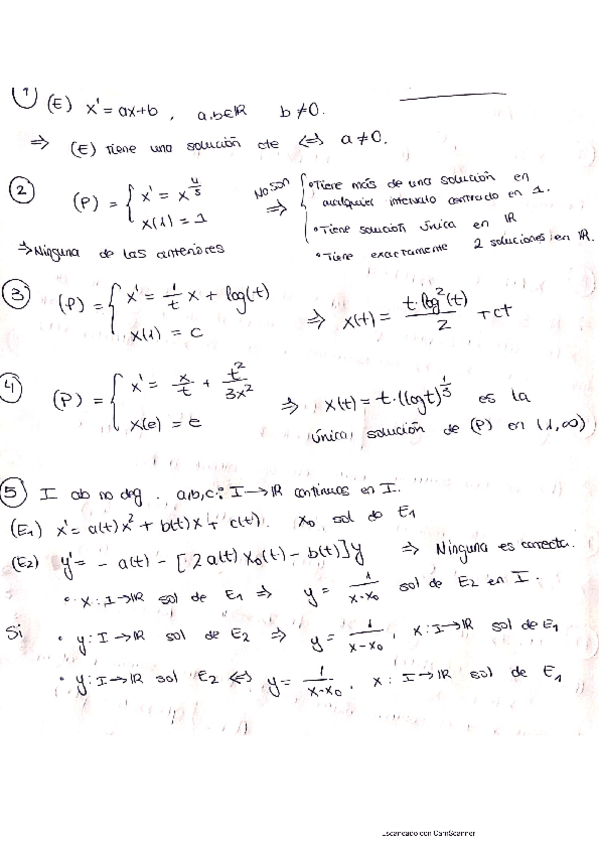 ① (E) x' = ax+b , a,b∈ℝ b≠0.
⇒ (E) tiene una solución cte ⇔ a≠0.
② (P) = { x' = x^{4/5} No son ⇒ { • Tiene más de una solución en
x(1) = 1 cualquier intervalo centrado en 1.
• Tiene solución única en ℝ
⇒ Ninguna de las anteriores • Tiene exactamente 2 soluciones en ℝ.
③ (P) = { x' = 1/t x + log(t) ⇒ x(t) = t·log²(t)/2 + ct
x(1) = c
④ (P) = { x' = x/t + t²/3x² ⇒ x(t) = t·(log t)^{1/3} es la
x(e) = e única solución de (P) en (1,∞)
⑤ I ab no deg . a,b,c: I→ℝ continuas en I.
(E1) x' = a(t)x² + b(t)x + c(t). x0 sol de E1
(E2) y' = - a(t) - [2a(t)x0(t) - b(t)]y ⇒ Ninguna es correcta.
• x: I→ℝ sol de E1 ⇒ y = 1/x-x0 sol de E2 en I.
Si • y: I→ℝ sol de E2 ⇒ y = 1/x-x0 , x: I→ℝ sol de E1
• y: I→ℝ sol E2 ⇔ y = 1/x-x0 . x: I→ℝ sol de E1
Escaneado con CamScanner